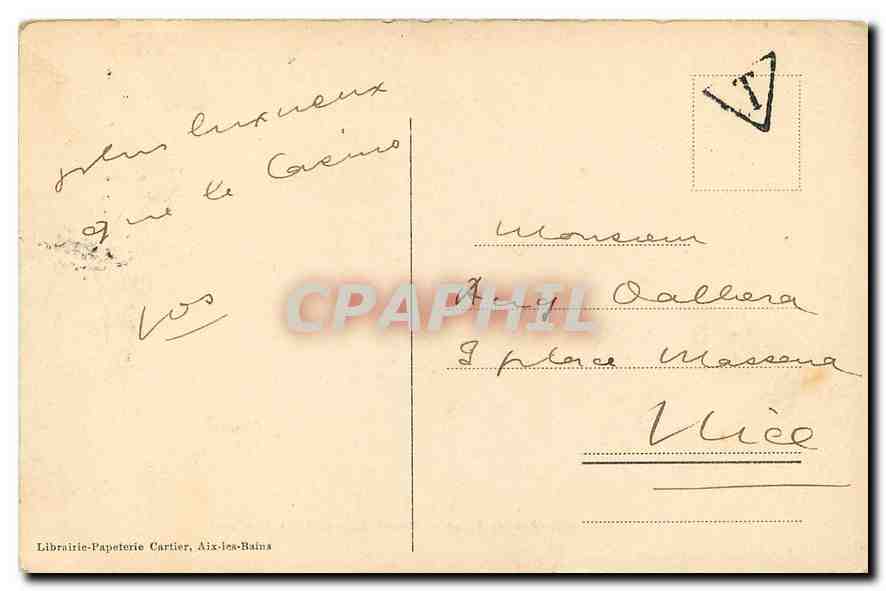 plus luxueux
que le Casino
T
Monsieur
Dalbera
place Massena
Nice
CPAPHIL
Librairie-Papeterie Cartier, Aix-les-Bains